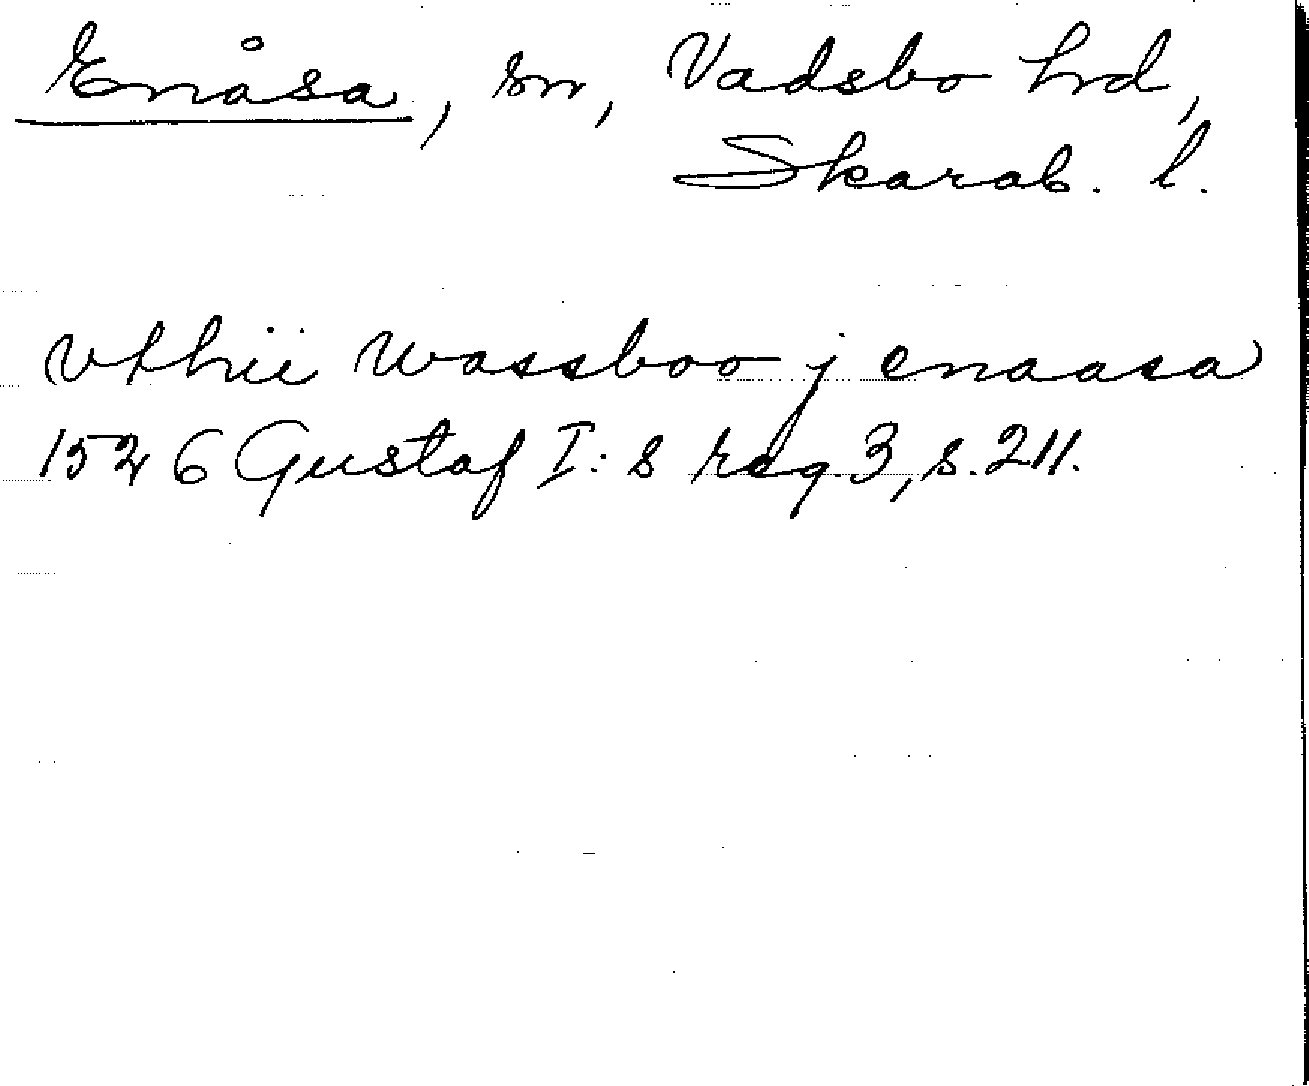 Enåsa, sn, Vadsbo hd,
Skarab. l.
vthii wassboo j enaasa
1526 Gustaf I:s reg. 3, s. 211.